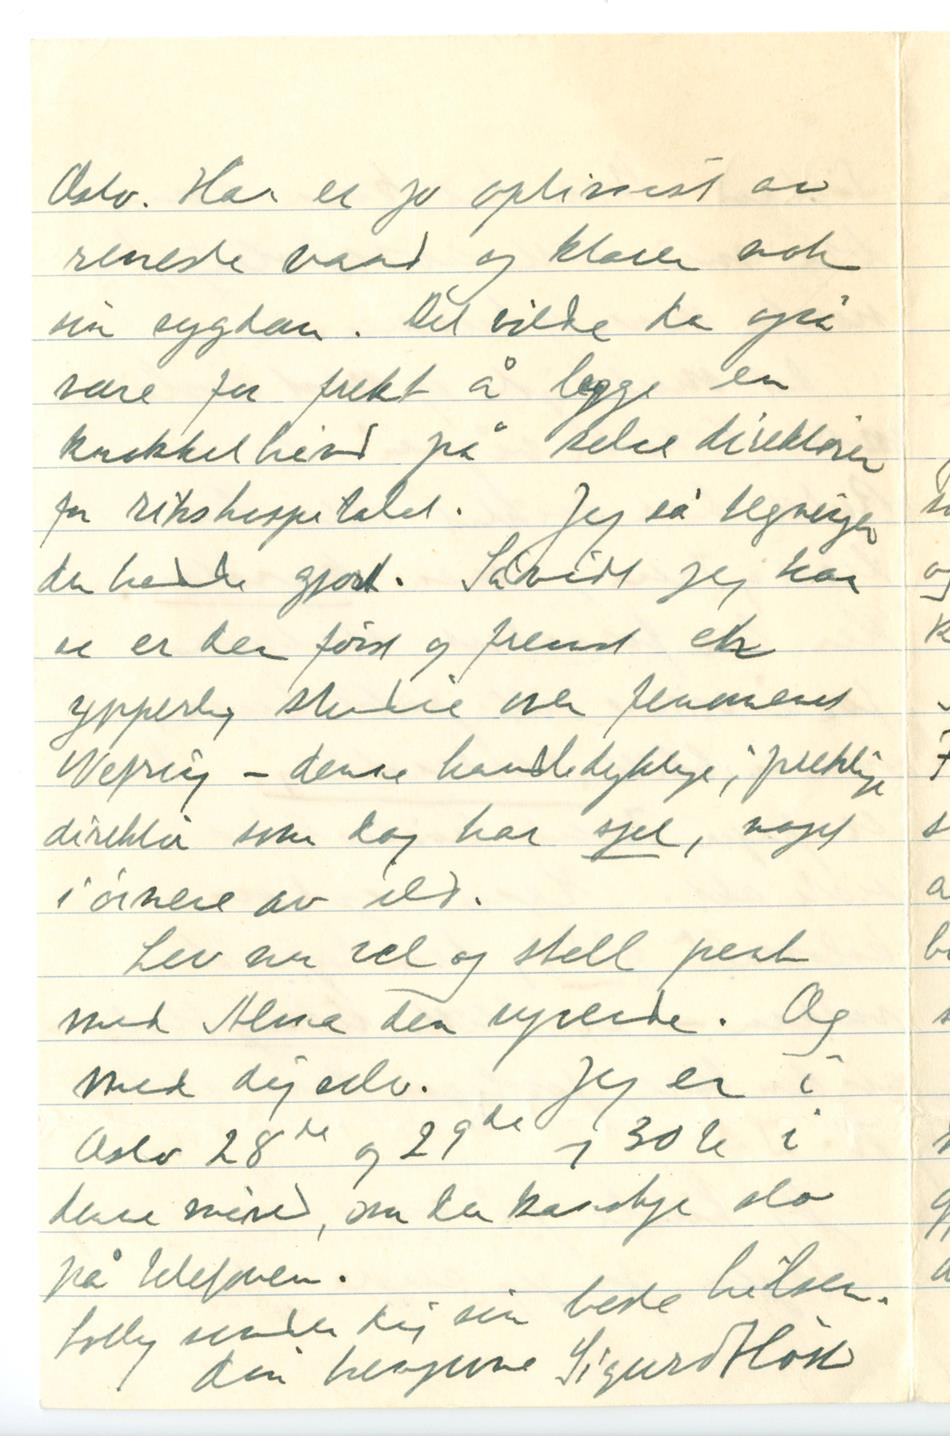 Oslo. Han er jo optimist av
reneste vand og klarer nok
sin sygdom. Det vilde da også
være for frekt å legge en
knokkelhånd på selve direktøren
for rikshospitalet. Jeg så tegningen
du hadde gjort. Såvidt jeg kan
se er den først og fremst en
ypperlig studie over fenomenet
Wefring – denne handledyktige, i
direktør som dog har sjel, noget
i örnene av ild.
Lev nu vel og stell pent
med Alma den nyreiste. Og
med dig selv. Jeg er i
Oslo 28de og 29de og 30te i
denne måned, om du kanskje slo
på telefonen.
Lolly sender dig sin beste hilsen.
din hengivne Sigurd Höst